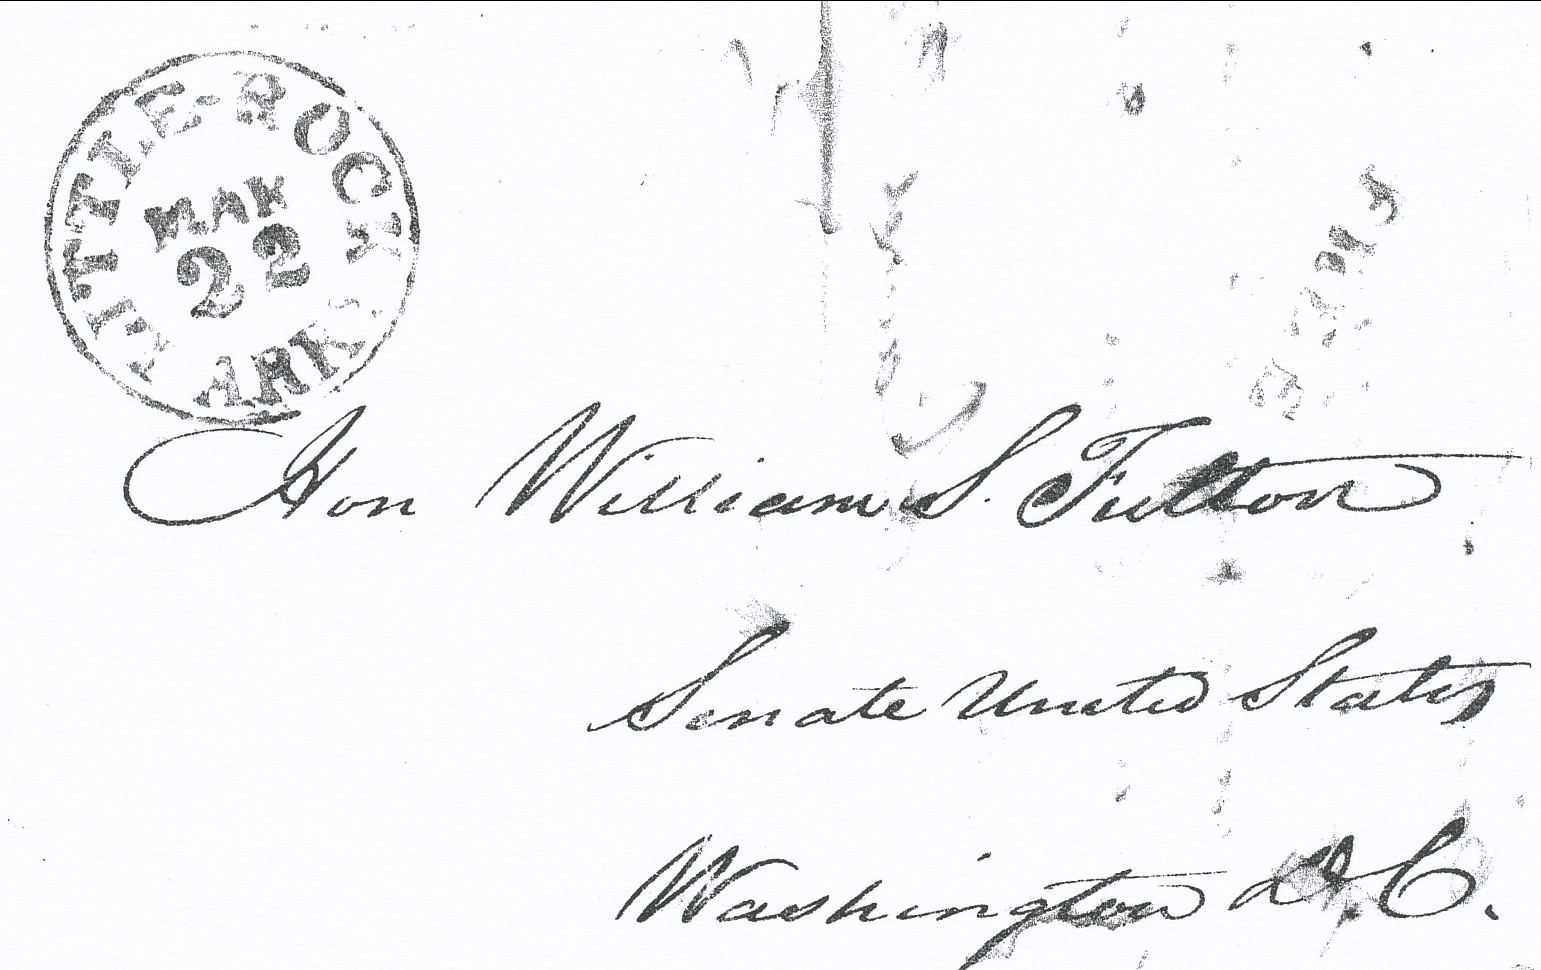 LITTLE-ROCK
ARK
MAR
22
Hon William S. Fulton
Senate United States
Washington D. C.